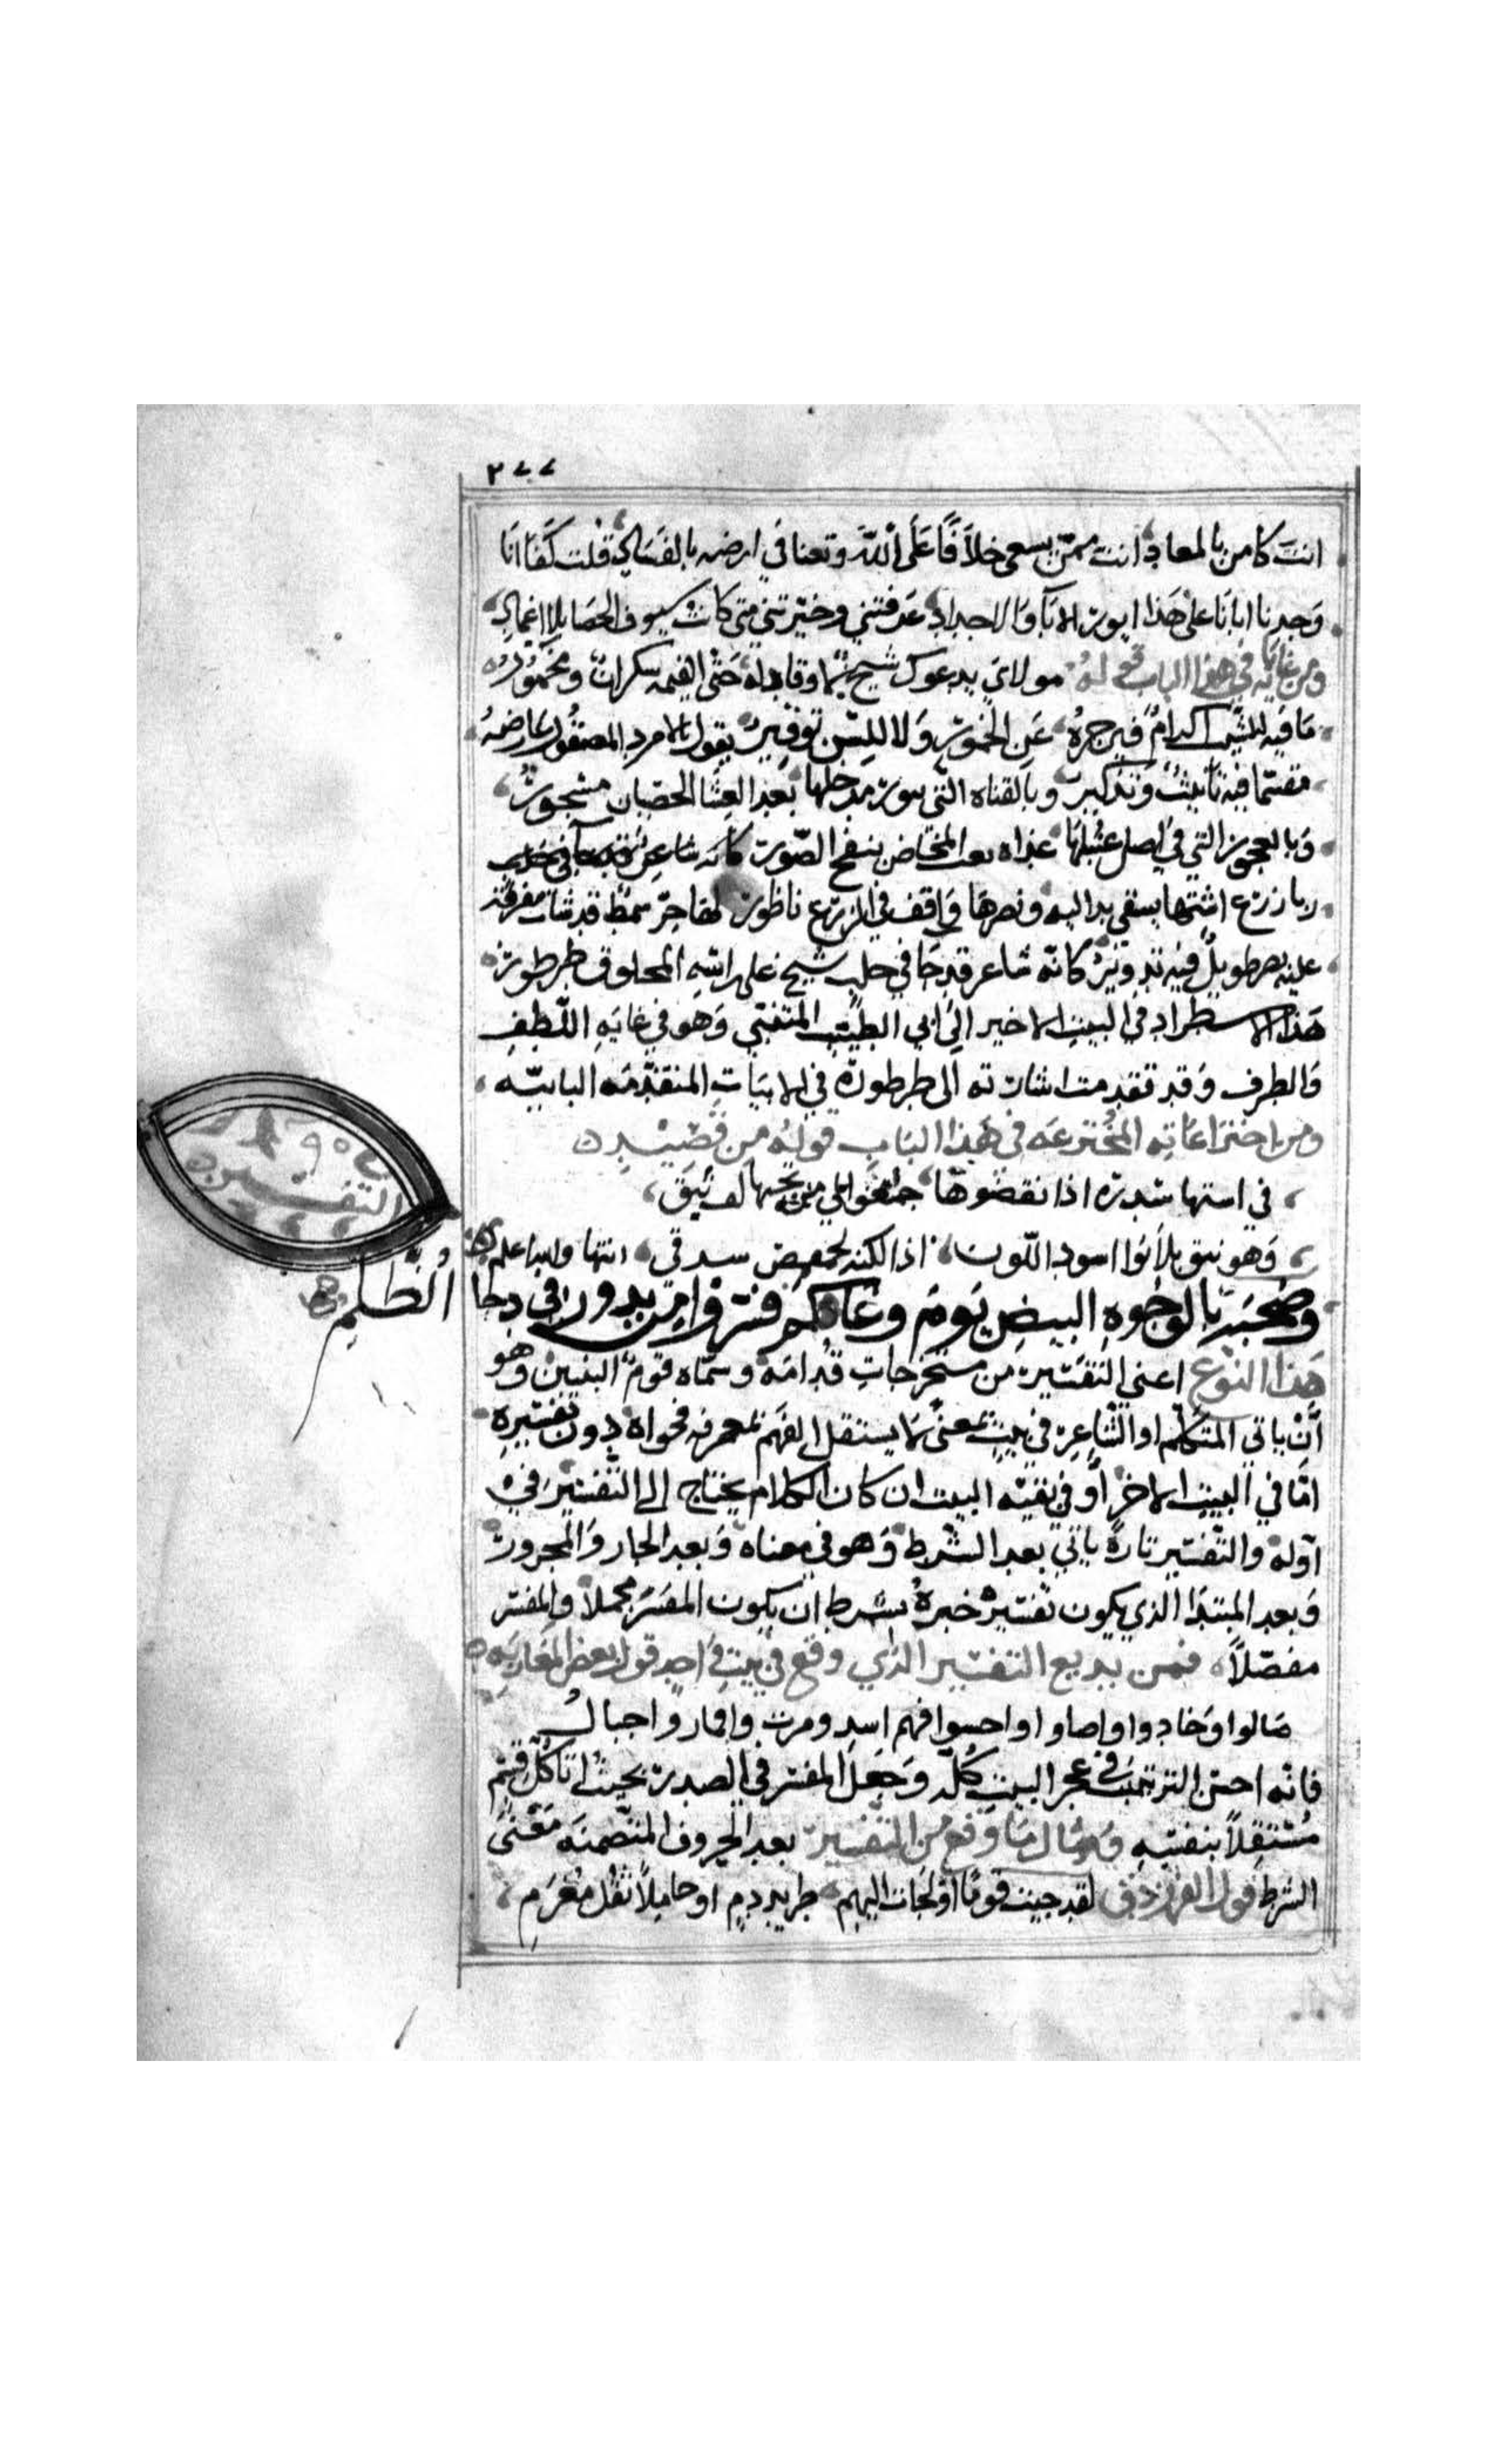 ٢٧٧
انت كافر بالمعاد انت ممن يسعى خلافا على الله وتعثا في ارضه بالفساد قلت كفا انا
وجدنا ابانا على هذا ابونر الابا والاجداد عرفتني وخيرتني متى كانت سيوف الحصا بلا اغماد
ومن غاياته في هذا الباب قوله مولاي يدعوك شيخ حتى القيه سكران ومخمور
ما فيه للشيب اكرام فيزجره عن الخمور ولا للسن توقير يقول بالامرد المصقول عارضه
فيه تانيث وتذكير وبالقناه التي بعد العشا الخصيان
وبالعجوز التي في اصل عنبلها ينفخ الصور كانه شاعر
زرع يسقى واقف في الزرع ناطور شمط قد شاب مفرقه
عليه طويل فيه تدوير كانه شاعر قد جا في حلب شيخ على راسه المحلوق طرطور
هذا الاسطراد في البيت الاخير الى ابي الطيب المتنبي وهو في غايه اللطف
والظرف وقد تقدمت اشارته الى طرطوره في الابيات المتقدمه البابيه
ومن اختراعاته المخترعه في هذا الباب قوله من قصيد
في استها شدره اذا نقضوها من تحتها لف نيق
وهو نيق بلا نوا اسود اللون اذا لكنه انتها والله اعلم
ع ٩٥
التفسير
وصحبه بالوجوه البيض يوم وغا كم فسروا من بدور في دجا الظلم
هذا النوع اعني التفسير من مستخرجات قدامه وسماه قوم التبيين وهو
ان ياتي المتكلم او الشاعر في بيت بمعنى لا يستقل الفهم بمعرفه فحواه دون تفسيره
اما في البيت الاخر او في بقيه البيت ان كان الكلام يحتاج الى التفسير في
اوله والتفسير تارة ياتي بعد الشرط وهو في معناه وبعد الجار والمجرور
وبعد المبتدا الذي يكون تفسيره خبره بشرط ان يكون المفسر مجملا والمفسر
مفصلا فمن بديع التفسير الذي وقع في بيت واحد قول بعض المغاربه
صالوا وجادوا واضاوا واحتبوا فهم اسد ومزن واقمار واجبال
فانه احسن الترتيب في عجز البيت كله وجعل المفسر في الصدر بحيث اتا كل قسم
مستقلا بنفسه ومثال ما وقع من التفسير بعد الحروف المتضمنه معنى
الشرط قول الفرزدق لقد جيت قوما لو لجات اليهم طريد دم او حاملا ثقل مغرم